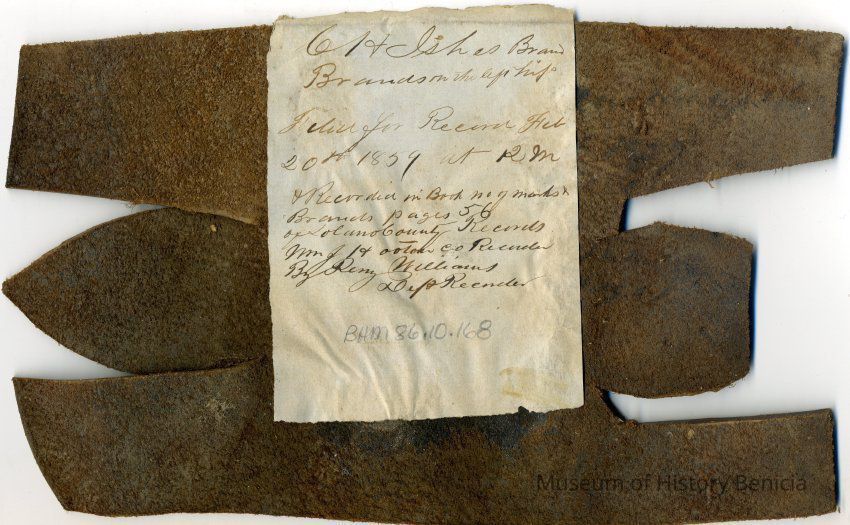 C H Ishes Brand
Brands on the left hip
Filed for Record Feb
20th 1859 at 12 M
& Recorded in Book no 9 marks &
Brands pages 56
of Solano County Records
Wm J Hooton Co Recorder
By Remy Williams
Dep Recorder
BHM 86.10.168
Museum of History Benicia